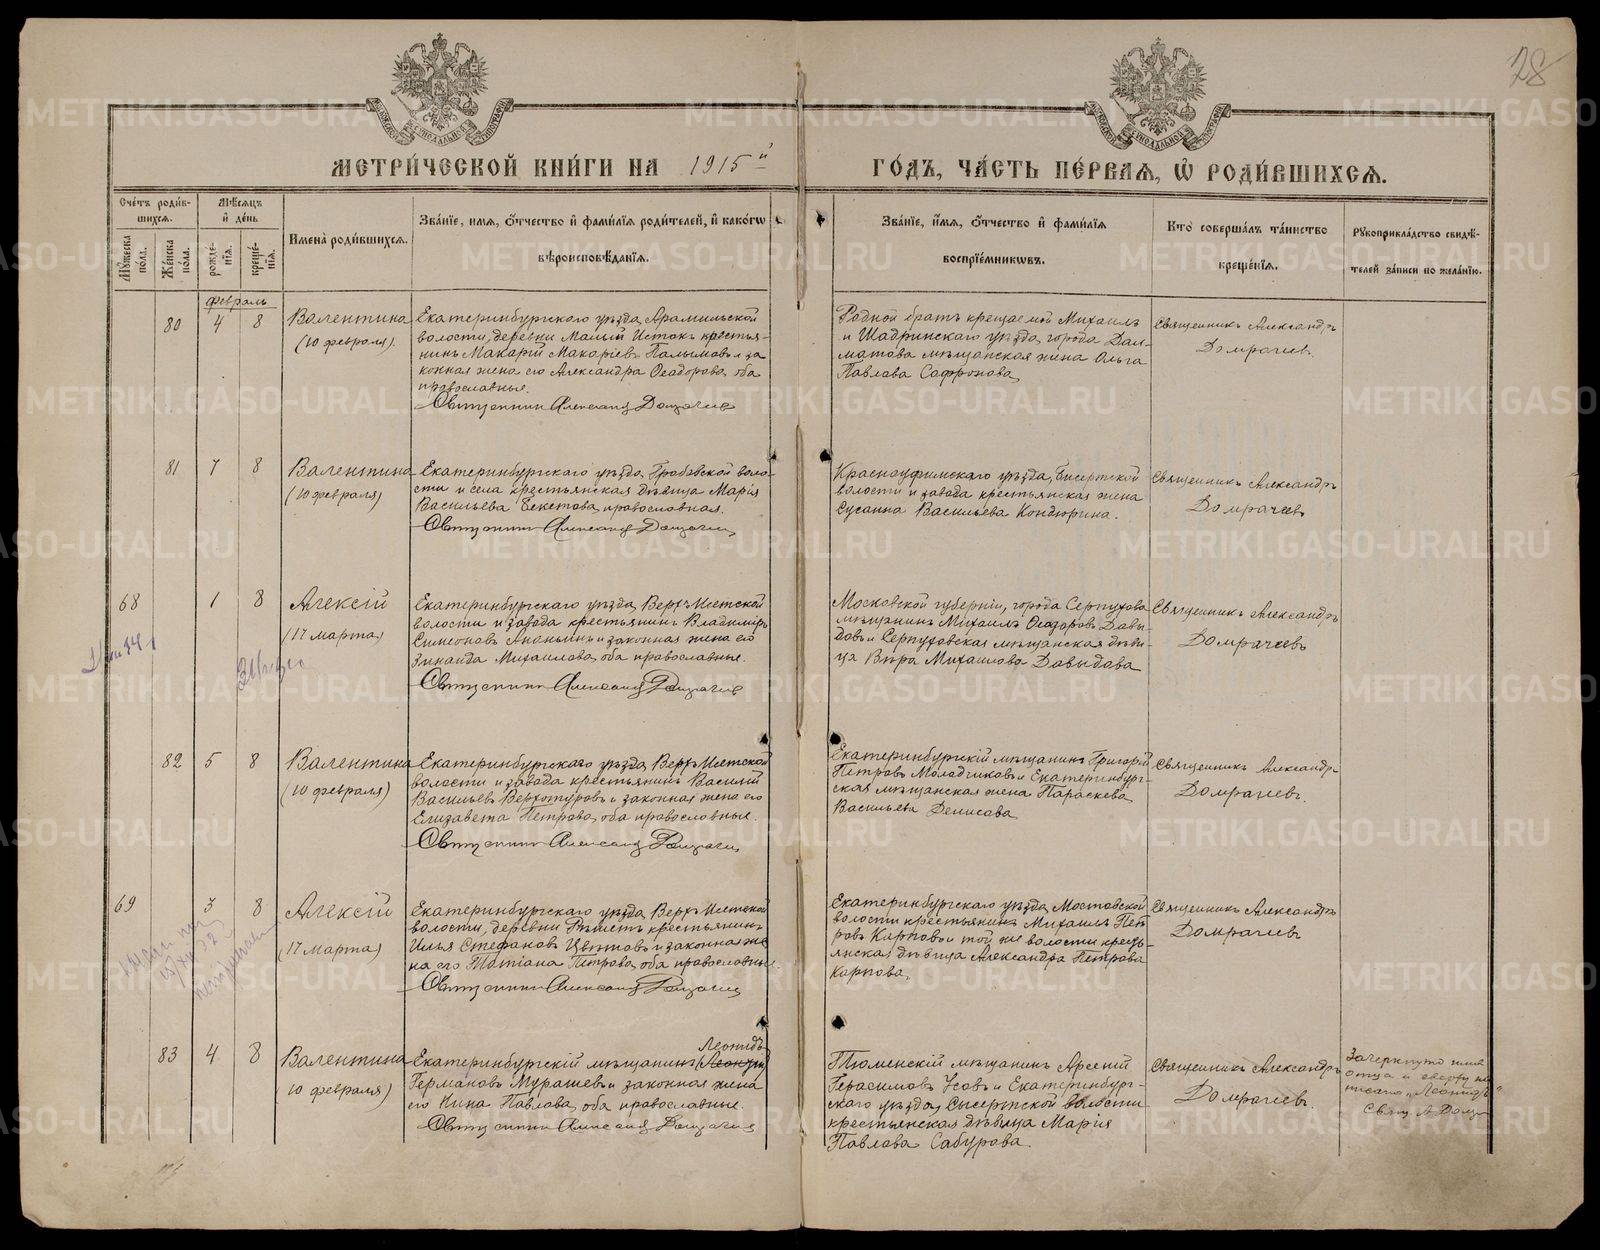 28
МЕТРИ́ЧЕСКОЙ КНИ́ГИ НА 1915й ГО́ДЪ, ЧА́СТЬ ПЕ́РВАЯ, Ѿ РОДИ́ВШИХСЯ.
Сче́тъ роди́в-
шихся.
Мѣ́сяцъ
и҆ де́нь
Мꙋ́жеска
по́ла.
Же́нска
по́ла.
рожде́-
нїя.
креще́-
нїя.
И҆мена̀ роди́вшихся.
Зва́нїе, и҆мя, ѻ҆́тчество и҆ фами́лїя роди́телей, и҆ како́гѡ
вѣроисповѣ́данїя.
Зва́нїе, и҆́мя, ѻ҆́тчество и҆ фами́лїя
воспрїе́мникѡвъ.
Кто̀ соверша́лъ та́инство
креще́нїя.
Рꙋкоприкла́дство свидѣ́-
телей за́писи по жела́нїю.
Февраль
80 4 8 Валентина
(10 февраля)
Екатеринбургскаго уѣзда, Арамильской
волости, деревни Малый Истокъ крестья-
нинъ Макарій Макаріевъ Палымовъ и за
конная жена его Александра Ѳеодорова, оба
православные.
Священникъ Александръ Домрачевъ
Родной братъ крещаемой Михаилъ
и Шадринскаго уѣзда, города Дал-
матова мѣщанская жена Ольга
Павлова Сафронова
Священникъ Александръ
Домрачевъ.
81 7 8 Валентина
(10 февраля)
Екатеринбургскаго уѣзда, Грабовской воло-
сти и села крестьянская дѣвица Марія
Васильева Бекетова, православная.
Священникъ Александръ Домрачевъ
Красноуфимскаго уѣзда, Бисертской
волости и завода крестьянская жена
Сусанна Васильева Кондюрина.
Священникъ Александръ
Домрачевъ
68 1 8 Алексій
(17 марта)
Екатеринбургскаго уѣзда, Верхъ-Исетской
волости и завода крестьянинъ Владиміръ
Симеоновъ Ананьинъ и законная жена его
Зинаида Михаилова, оба православные.
Священникъ Александръ Домрачевъ
Московской губерніи, города Серпухова
мѣщанинъ Михаилъ Ѳеодоровъ Давы-
довъ и Серпуховская мѣщанская дѣви-
ца Вѣра Михаилова Давыдова
Священникъ Александръ
Домрачевъ
82 5 8 Валентина
(10 февраля)
Екатеринбургскаго уѣзда, Верхъ-Исетской
волости и завода крестьянинъ Василій
Васильевъ Верхотуровъ и законная жена его
Елизавета Петрова, оба православные.
Священникъ Александръ Домрачевъ
Екатеринбургскій мѣщанинъ Григорій
Петровъ Молодчиковъ и Екатеринбург-
ская мѣщанская жена Параскева
Васильева Денисова
Священникъ Александръ
Домрачевъ.
69 3 8 Алексій
(17 марта)
Екатеринбургскаго уѣзда, Верхъ-Исетской
волости, деревни крестьянинъ
Илья Стефановъ Цвѣтовъ и законная же
на его Татіана Петрова, оба православные.
Священникъ Александръ Домрачевъ
Екатеринбургскаго уѣзда, Мостовской
волости крестьянинъ Михаилъ Пет
ровъ Карповъ и той же волости кресть-
янская дѣвица Александра Петрова
Карпова.
Священникъ Александръ
Домрачевъ
83 4 8 Валентина
(10 февраля)
Леонидъ
Екатеринбургскій мѣщанинъ
Германовъ Мурашевъ и законная жена
его Нина Павлова, оба православные.
Священникъ Александръ Домрачевъ
Тюменскій мѣщанинъ Арсеній
Герасимовъ Усовъ и Екатеринбург-
скаго уѣзда, Сысертской волости
крестьянская дѣвица Марія
Павлова Сабурова.
Священникъ Александръ
Домрачевъ.
Зачеркнуто имя
отца и сверху на
писано „Леонидъ"
Свящ. А. Домр
METRIKI.GASO-URAL.RU